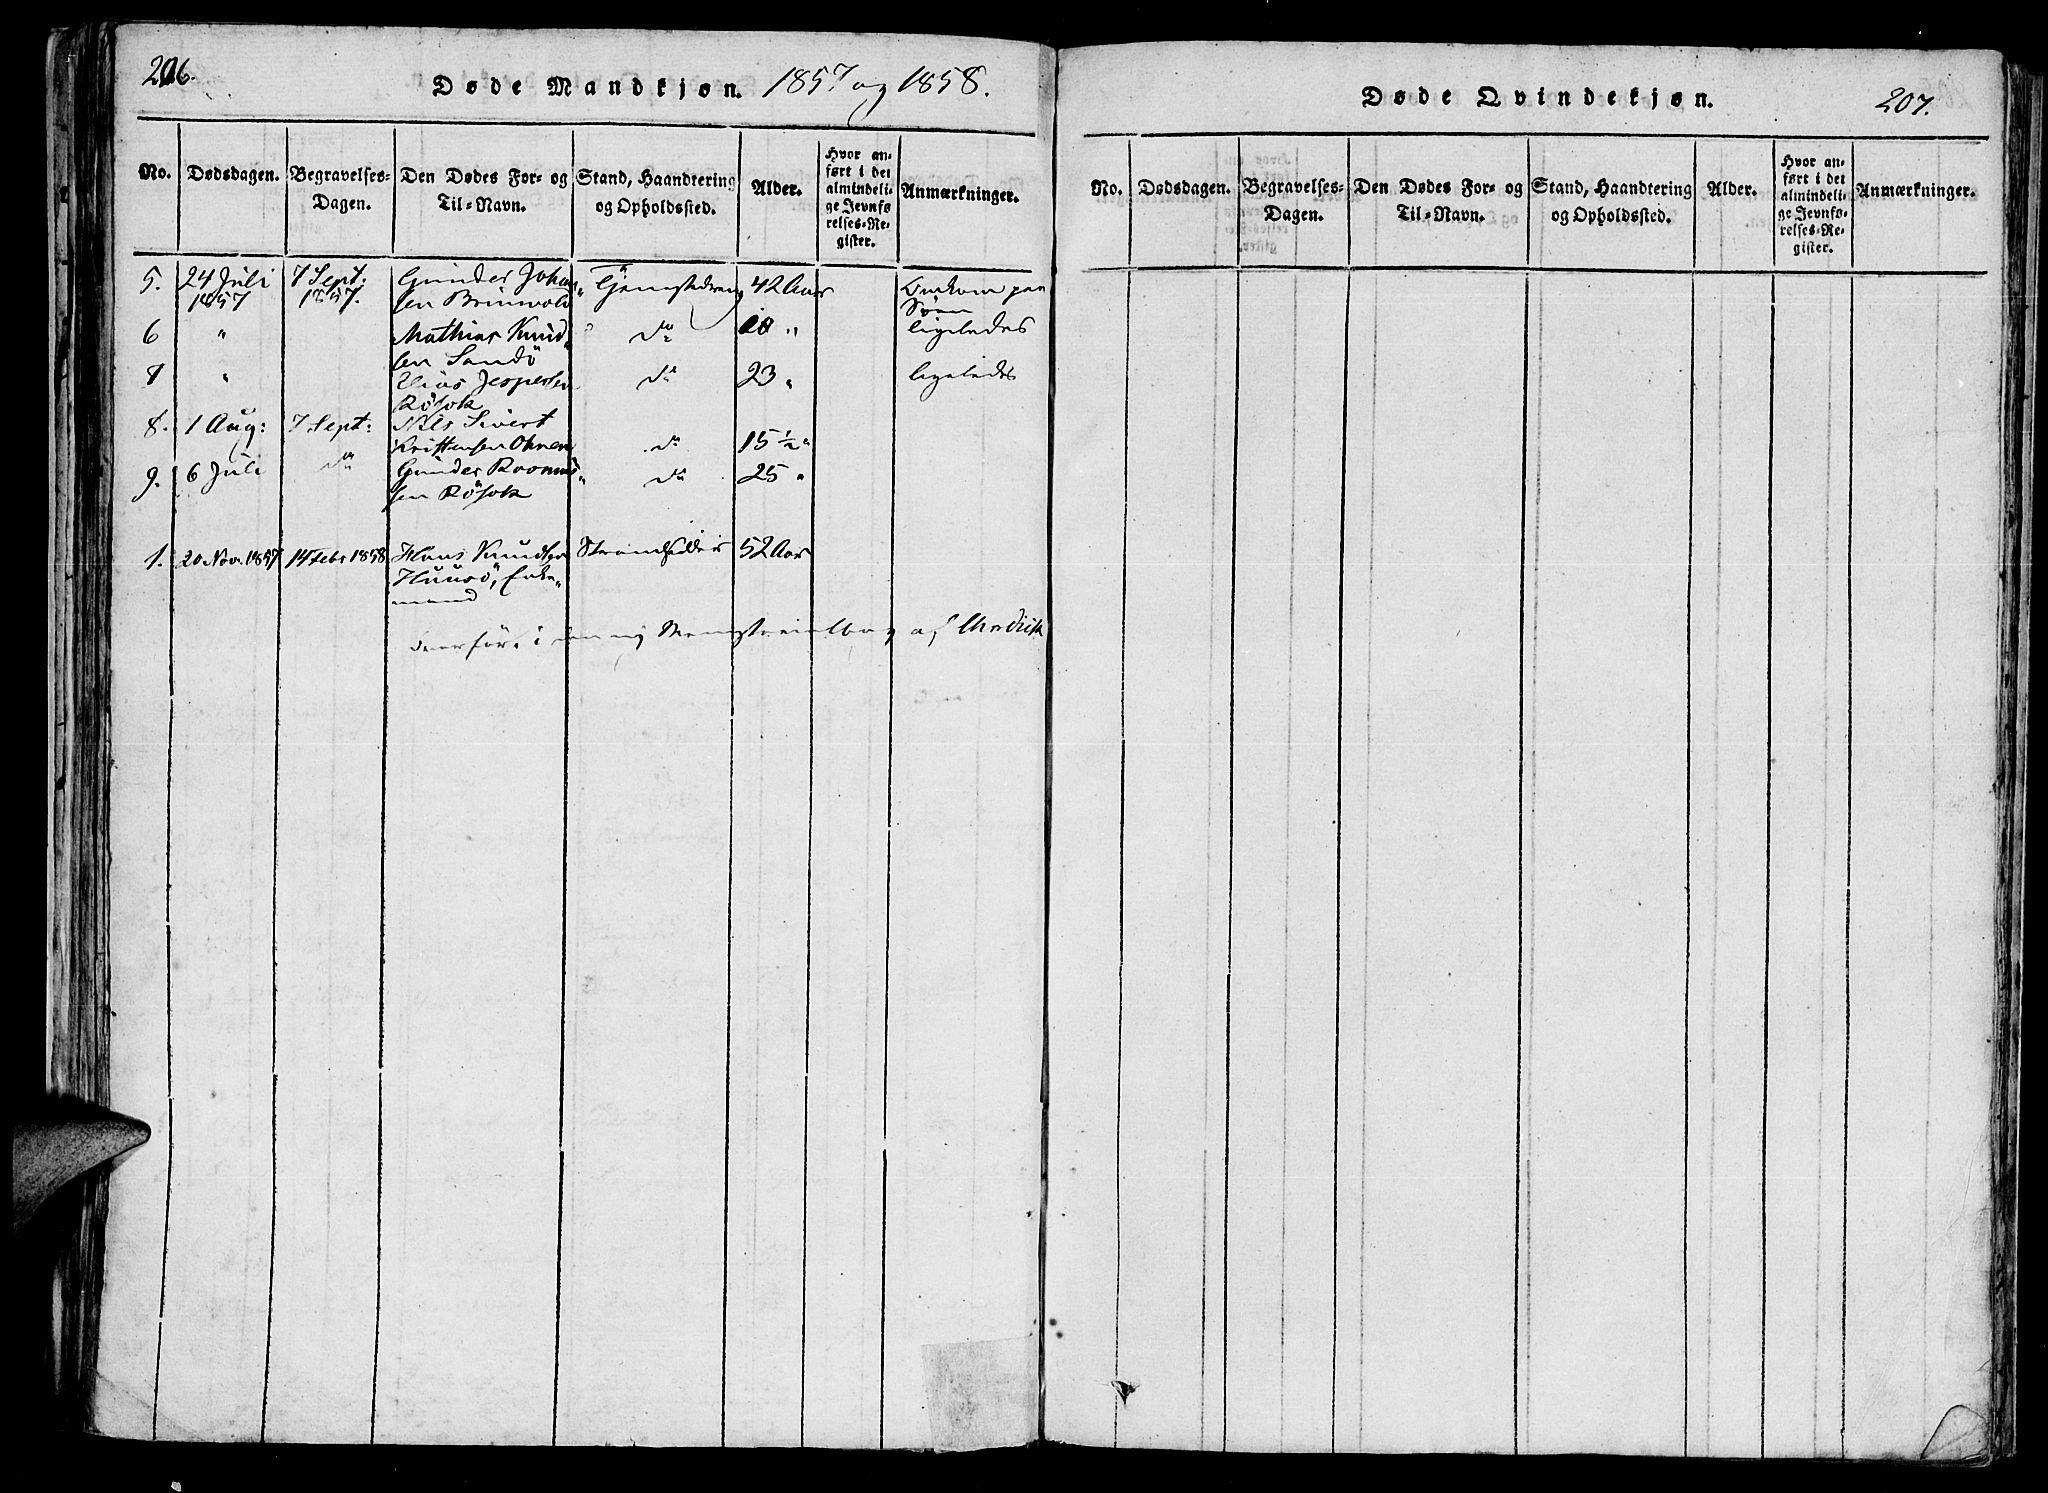 206.
Døde Mandkjøn. 1857 og 1858.
No. Dødsdagen. Begravelses-Dagen. Den Dødes For- og Til-Navn. Stand, Haandtering og Opholdssted. Alder. Hvor anført i det almindelige Jevnførelses-Register. Anmærkninger.
5. 24 Juli 7 Sept: Gunder Johan" 42 Aar Omkom paa
1857 1857. sen Søen
6 " Mathias Knud" do 18 " ligeledes
sen Sandö
" Elias Jespersen do 23 " ligeledes
Rösok
8. 1 Aug: 7 Sept: Nils Sivert
do 15 ½ "
9. 6 Juli do Gunder Rasmus" do 25 "
sen Rösok
1. 20 Nov. 1857 14 Febr 1858 Hans Knudsen Strandsidder 52 Aar
Huusö, Enke"
mand
i
207.
Døde Qvindekjøn.
No. Dødsdagen. Begravelses-Dagen. Den Dødes For- og Til-Navn. Stand, Haandtering og Opholdssted. Alder. Hvor anført i det almindelige Jevnførelses-Register. Anmærkninger.